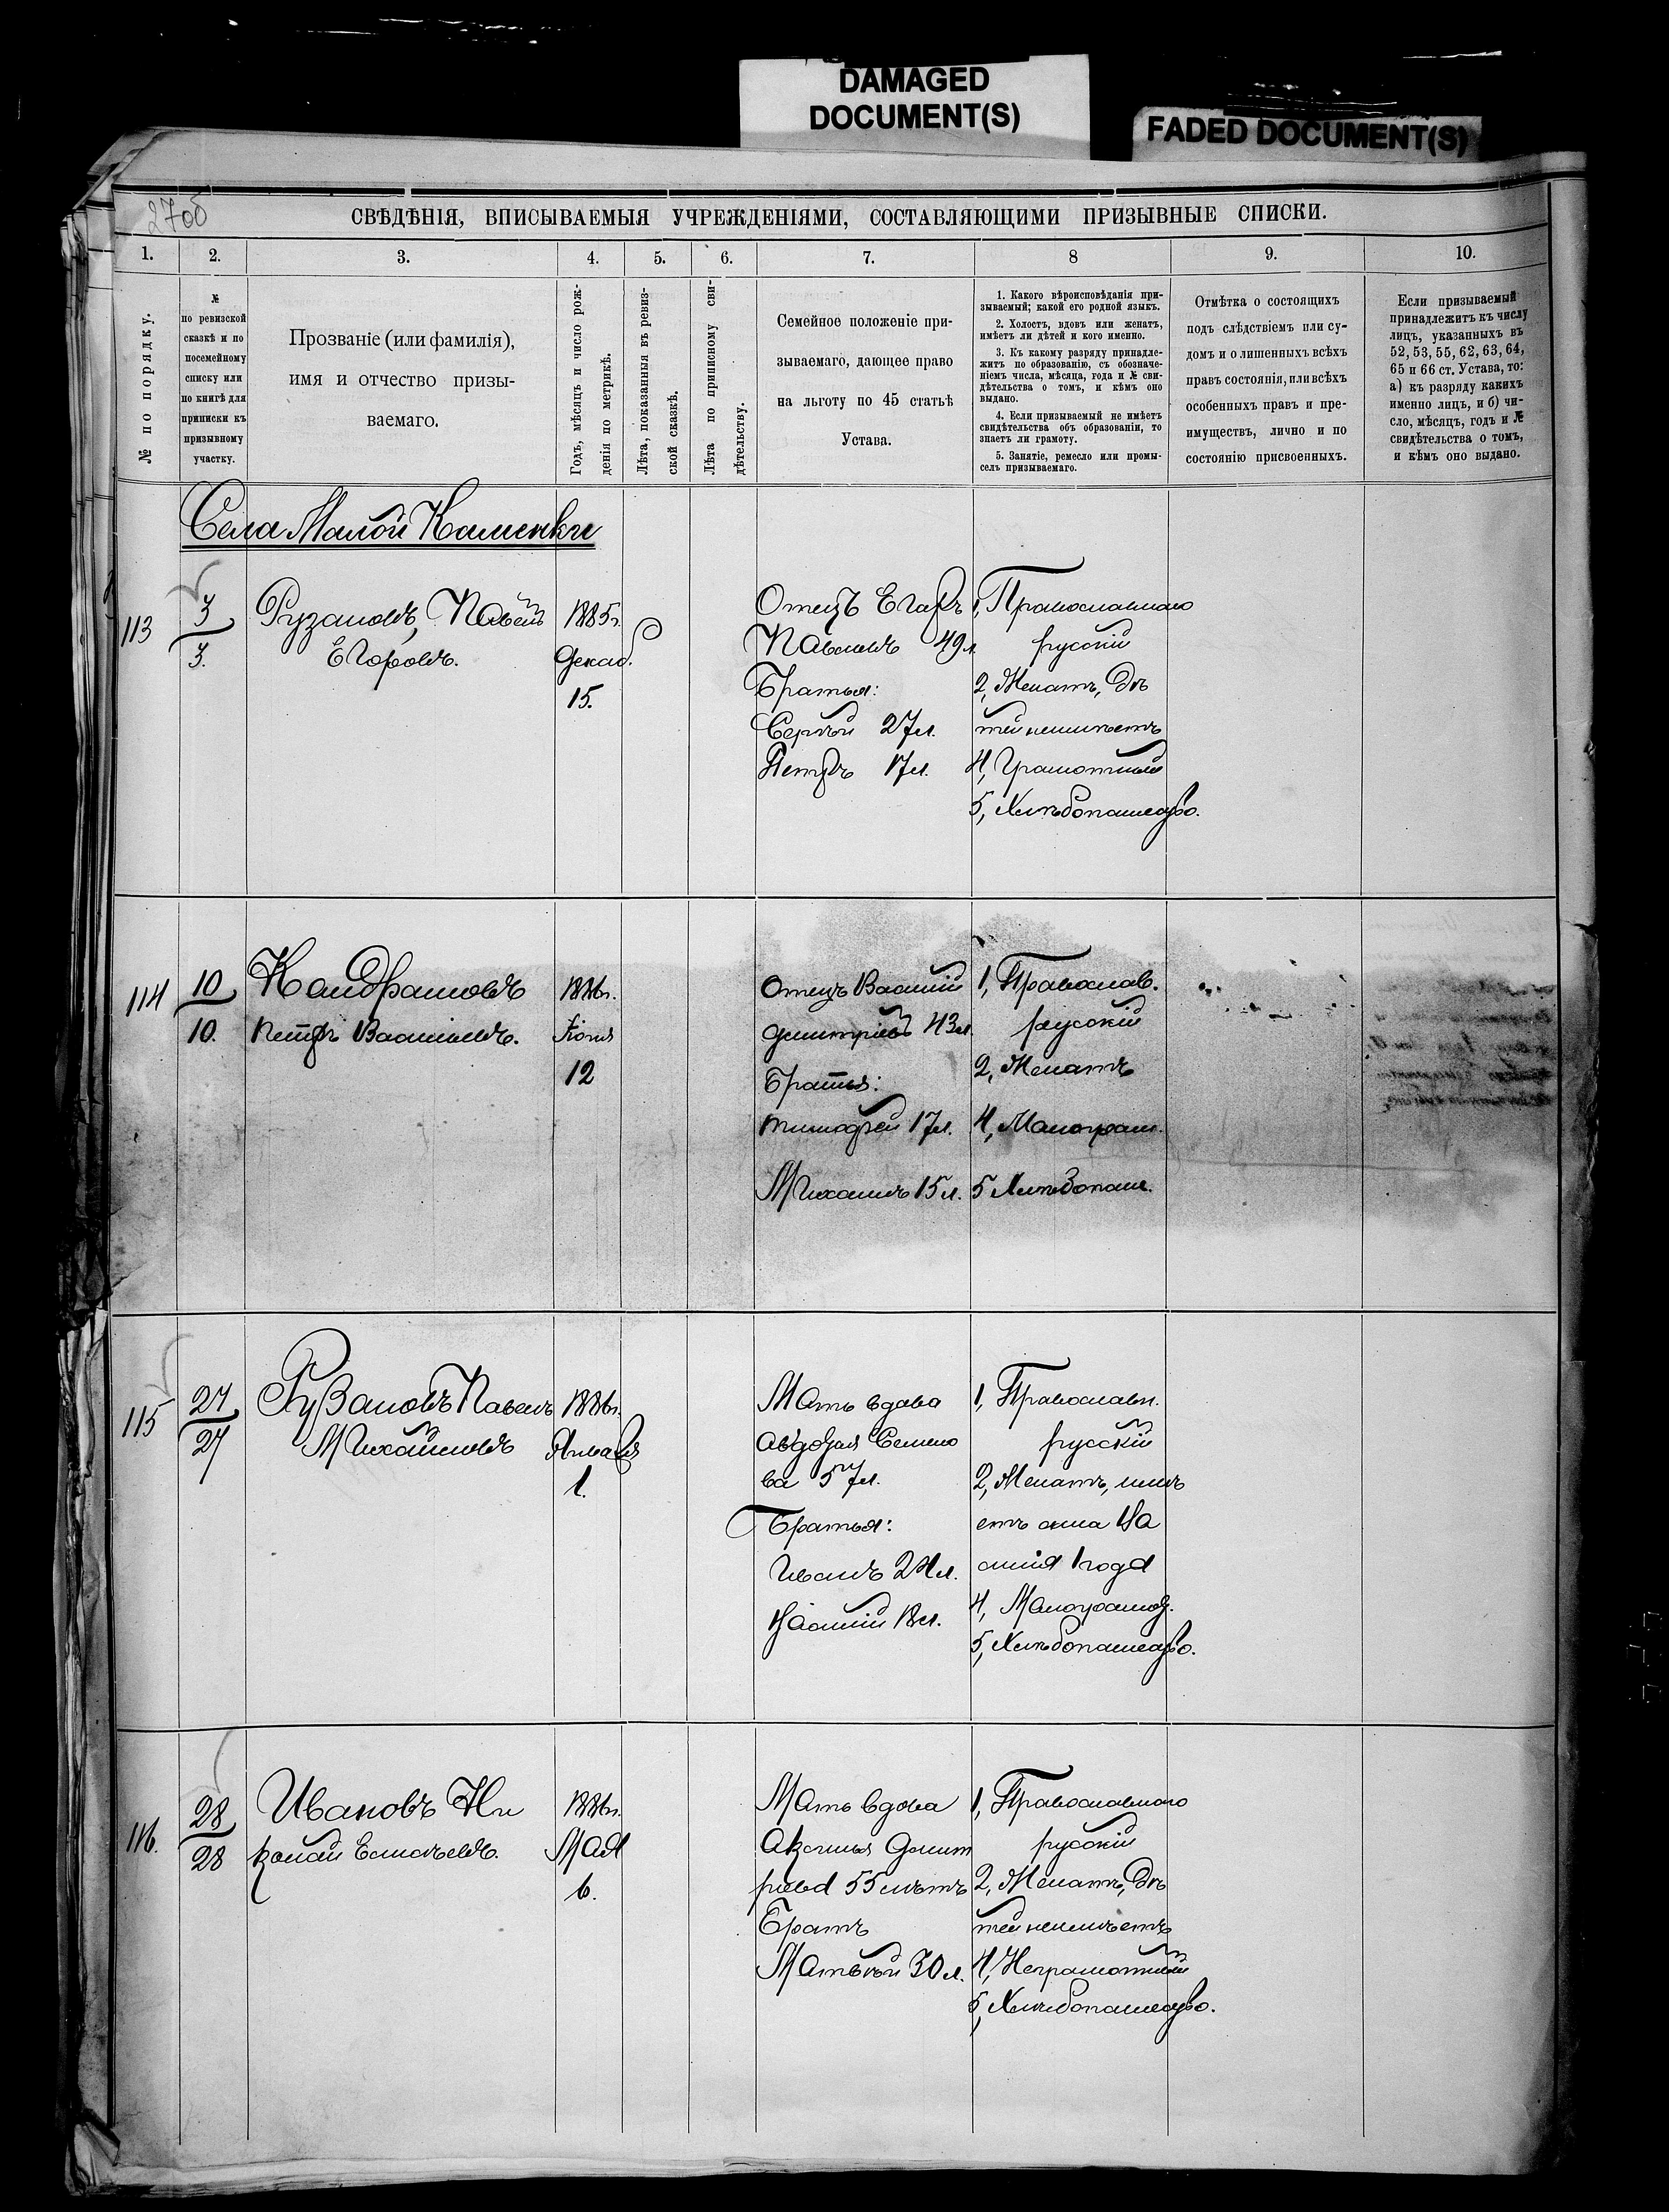 DAMAGED
DOCUMENT(S)
FADED DOCUMENT(S)
27об
СВѢДѢНІЯ, ВПИСЫВАЕМЫЯ УЧРЕЖДЕНІЯМИ, СОСТАВЛЯЮЩИМИ ПРИЗЫВНЫЕ СПИСКИ.
1. 2. 3. 4. 5. 6. 7. 8 9. 10.
№ по порядку.
№
по ревизской
сказкѣ и по
посемейному
списку или
по книгѣ для
приписки къ
призывному
участку.
Прозваніе (или фамилія),
имя и отчество призы-
ваемаго.
Годъ, мѣсяцъ и число рож-
денія по метрикѣ.
Лѣта, показанныя въ ревиз-
ской сказкѣ.
Лѣта по приписному сви-
дѣтельству.
Семейное положеніе при-
зываемаго, дающее право
на льготу по 45 статьѣ
Устава.
1. Какого вѣроисповѣданія при-
зываемый; какой его родной языкъ.
2. Холостъ, вдовъ или женатъ,
имѣетъ ли дѣтей и кого именно.
3. Къ какому разряду принадле-
житъ по образованію, съ обозначе-
ніемъ числа, мѣсяца, года и № сви-
дѣтельства о томъ, и кѣмъ оно
выдано.
4. Если призываемый не имѣетъ
свидѣтельства объ образованіи, то
знаетъ ли грамоту.
5. Занятіе, ремесло или промы-
селъ призываемаго.
Отмѣтка о состоящихъ
подъ слѣдствіемъ или су-
домъ и о лишенныхъ всѣхъ
правъ состоянія, или всѣхъ
особенныхъ правъ и пре-
имуществъ, лично и по
состоянію присвоенныхъ.
Если призываемый
принадлежитъ къ числу
лицъ, указанныхъ въ
52, 53, 55, 62, 63, 64,
65 и 66 ст. Устава, то:
а) къ разряду какихъ
именно лицъ, и б) чи-
сло, мѣсяцъ, годъ и №
свидѣтельства о томъ,
и кѣмъ оно выдано.
Села Малой Каменки
113
3
3.
Рузановъ, Павелъ
Егоровъ.
1885г.
Декаб.
15.
Отецъ Егоръ
Павловъ 49л.
Братья:
Сергѣй 27л.
Петръ 17л.
1, Православнаго
русскій
2, Женатъ, дѣ
тей неимѣетъ
4, Грамотный
5, Хлѣбопашество.
114
10
10.
Кандрашовъ
Петръ Васильевъ.
1886г.
Іюня
12
Отецъ Василій
Дмитріевъ 43л.
Братья:
Тимофей 17л.
Михаилъ 15л.
1, Православ.
русскій
2, Женатъ
4, Малограм.
5 Хлѣбопаш.
115
27
27
Рузановъ Павелъ
Михайловъ
1886г.
Января
1.
Мать вдова
Авдотья Семено
ва 57л.
Братья:
Иванъ 24л.
Василій 18л.
1, Православн.
русскій
2, Женатъ, имѣ
етъ сына Ва
силія 1 года
4, Малограмот.
5, Хлѣбопашество.
116.
28
28
Ивановъ Ни
колай
1886г.
Мая
6.
Мать вдова
Аксинья Дмит
ріева 55 лѣтъ
Братъ
Матвѣй 30л.
1, Православнаго
русскій
2, Женатъ, дѣ
тей неимѣетъ
4, Неграмотный
5, Хлѣбопашество.